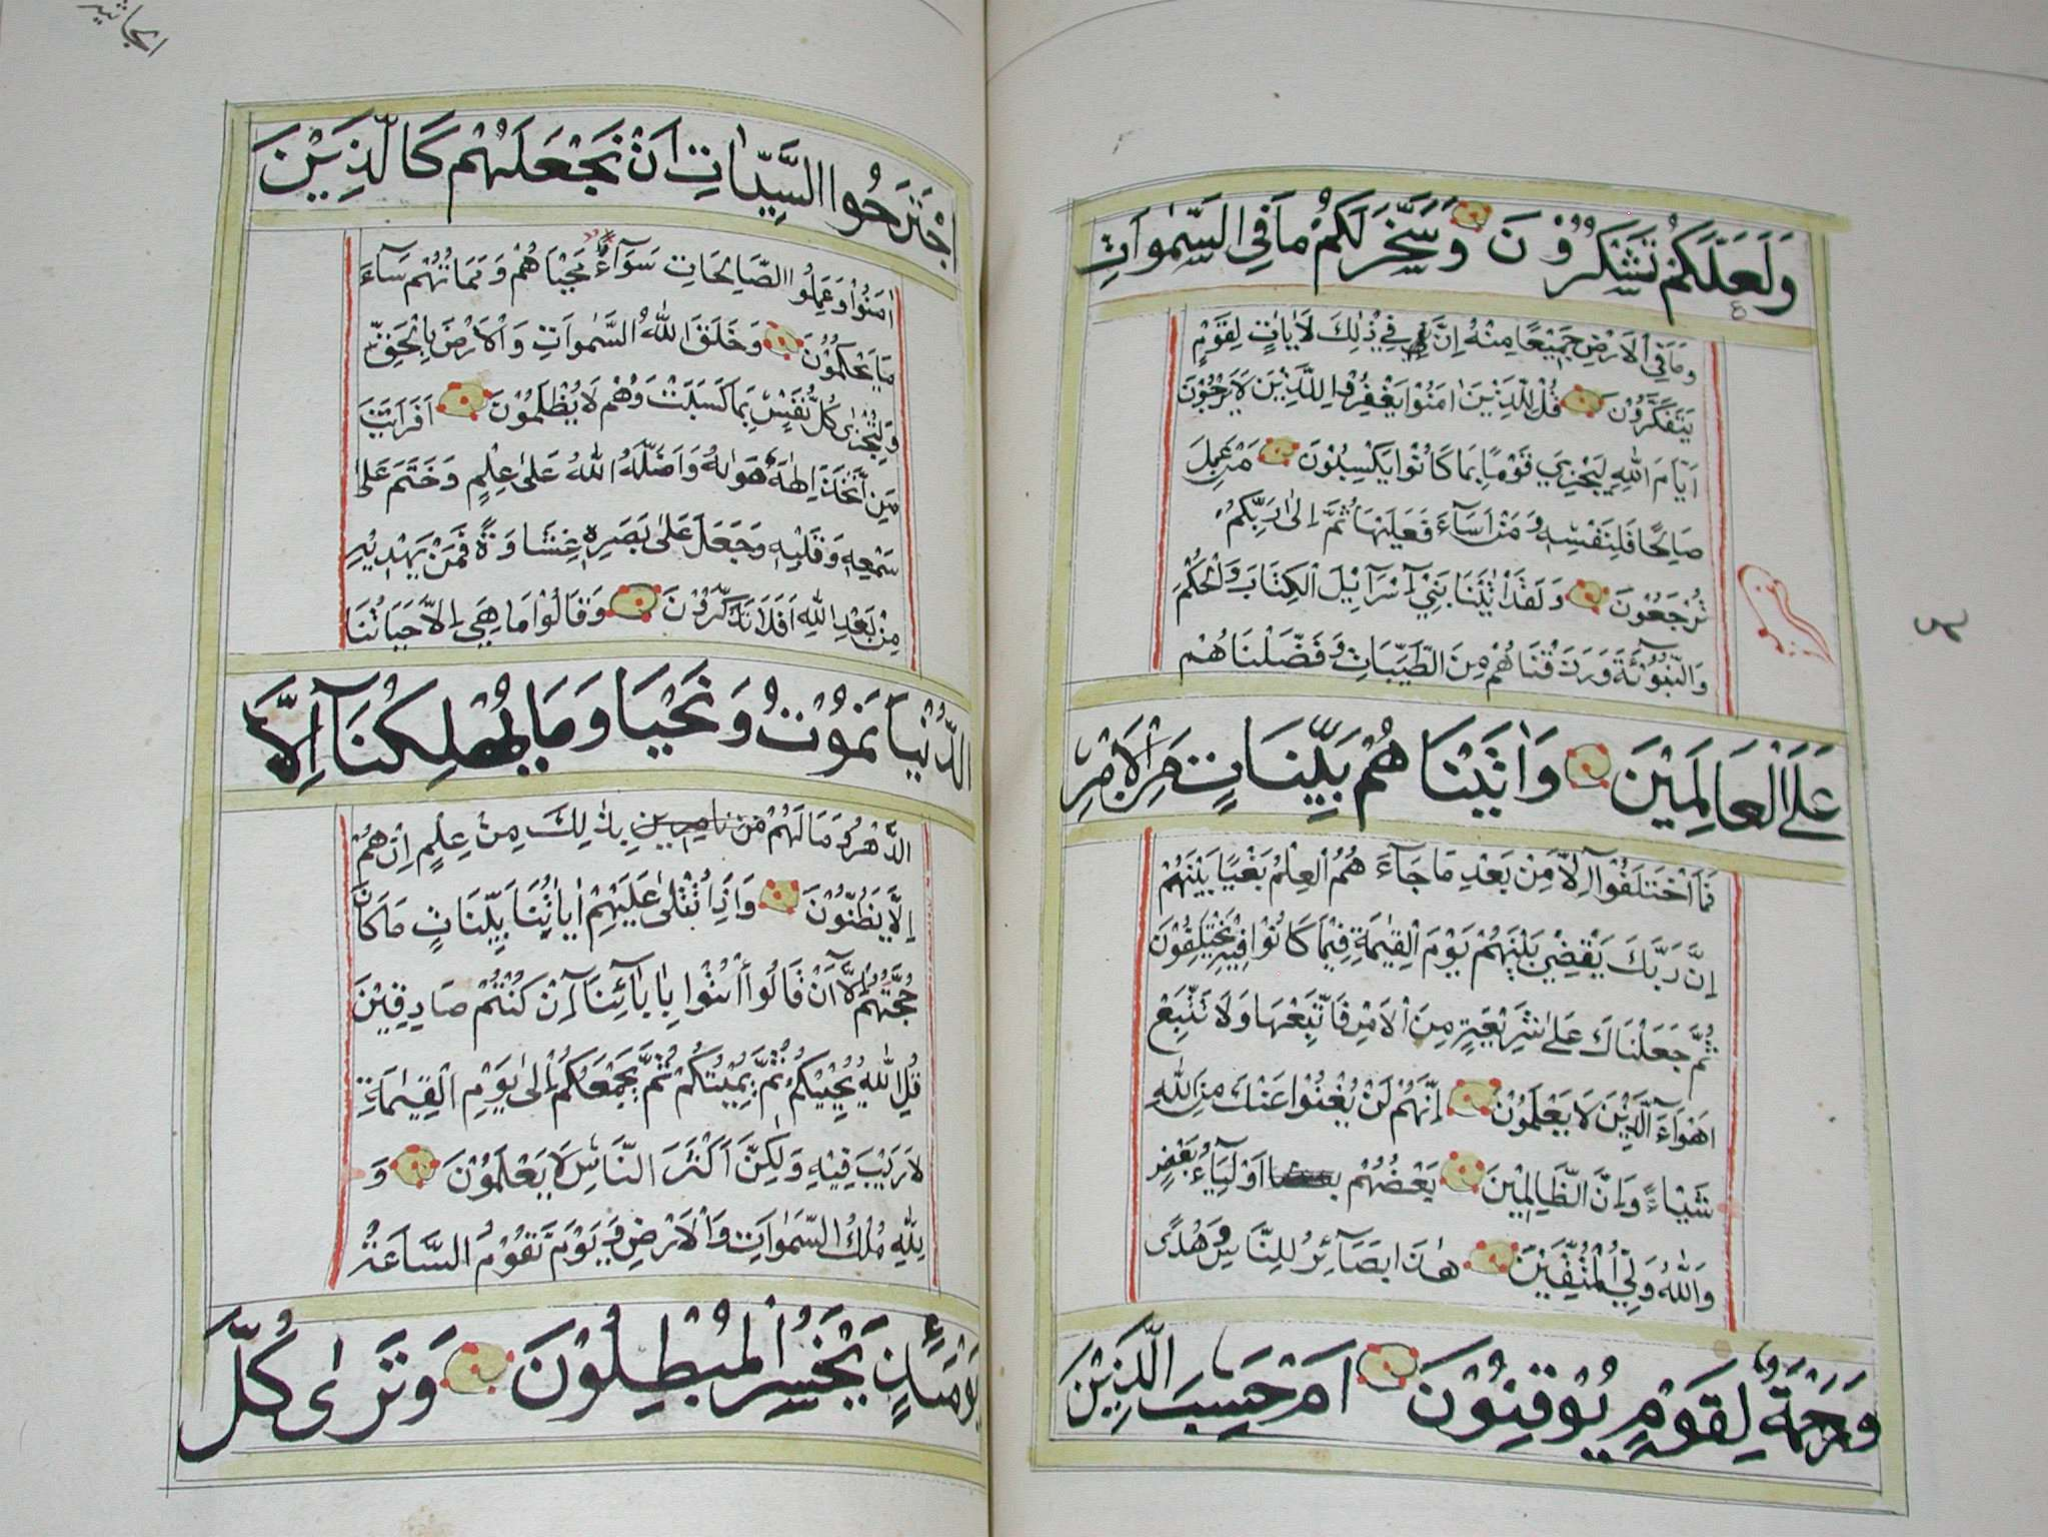 وَلَعَلَّكُمْ تَشْكُرُوْنَ وَسَخَّرَ لَكُمْ مَا فِي السَّمٰواتِ
وَمَا فِي الْاَرْضِ جَمِيْعًا مِنْهُ اِنَّ فِيْ ذٰلِكَ لَاٰيَاتٍ لِقَوْمٍ
يَتَفَكَّرُوْنَ قُلْ لِلَّذِيْنَ اٰمَنُوْا يَغْفِرُوْا لِلَّذِيْنَ لَا يَرْجُوْنَ
اَيَّامَ اللّٰهِ لِيَجْزِيَ قَوْمًا بِمَا كَانُوْا يَكْسِبُوْنَ مَنْ عَمِلَ
صَالِحًا فَلِنَفْسِهٖ وَمَنْ اَسَآءَ فَعَلَيْهَا ثُمَّ اِلٰى رَبِّكُمْ
تُرْجَعُوْنَ وَلَقَدْ اٰتَيْنَا بَنِيْٓ اِسْرَآئِيْلَ الْكِتَابَ وَالْحُكْمَ
وَالنُّبُوَّةَ وَرَزَقْنَاهُمْ مِنَ الطَّيِّبَاتِ وَفَضَّلْنَاهُمْ
عَلَى الْعَالَمِيْنَ وَاٰتَيْنَاهُمْ بَيِّنَاتٍ مِنَ الْاَمْرِ
فَمَا اخْتَلَفُوْٓا اِلَّا مِنْ بَعْدِ مَا جَآءَ هُمُ الْعِلْمُ بَغْيًا بَيْنَهُمْ
اِنَّ رَبَّكَ يَقْضِيْ بَيْنَهُمْ يَوْمَ الْقِيٰمَةِ فِيْمَا كَانُوْا فِيْهِ يَخْتَلِفُوْنَ
ثُمَّ جَعَلْنَاكَ عَلٰى شَرِيْعَةٍ مِنَ الْاَمْرِ فَاتَّبِعْهَا وَلَا تَتَّبِعْ
اَهْوَآءَ الَّذِيْنَ لَا يَعْلَمُوْنَ اِنَّهُمْ لَنْ يُغْنُوْا عَنْكَ مِنَ اللّٰهِ
شَيْاءً وَاِنَّ الظَّالِمِيْنَ بَعْضُهُمْ اَوْلِيَآءُ بَعْضٍ
وَاللّٰهُ وَلِيُّ الْمُتَّقِيْنَ هٰذَا بَصَآئِرُ لِلنَّاسِ وَهُدًى
وَرَحْمَةٌ لِقَوْمٍ يُوْقِنُوْنَ اَمْ حَسِبَ الَّذِيْنَ
الجاثية
اجْتَرَحُوا السَّيِّاٰتِ اَنْ نَجْعَلَهُمْ كَالَّذِيْنَ
اٰمَنُوْا وَعَمِلُوا الصَّالِحَاتِ سَوَآءً مَحْيَاهُمْ وَمَمَاتُهُمْ سَآءَ
مَا يَحْكُمُوْنَ وَخَلَقَ اللّٰهُ السَّمٰواتِ وَالْاَرْضَ بِالْحَقِّ
وَلِتُجْزٰى كُلُّ نَفْسٍ بِمَا كَسَبَتْ وَهُمْ لَا يُظْلَمُوْنَ اَفَرَاَيْتَ
مَنِ اتَّخَذَ اِلٰهَهُ هَوٰىهُ وَاَضَلَّهُ اللّٰهُ عَلٰى عِلْمٍ وَخَتَمَ عَلٰى
سَمْعِهٖ وَقَلْبِهٖ وَجَعَلَ عَلٰى بَصَرِهٖ غِشَاوَةً فَمَنْ يَهْدِيْهِ
مِنْ بَعْدِ اللّٰهِ اَفَلَا تَذَكَّرُوْنَ وَقَالُوْا مَا هِيَ اِلَّا حَيَاتُنَا
الدُّنْيَا نَمُوْتُ وَنَحْيَا وَمَا يُهْلِكُنَآ اِلَّا
الدَّهْرُ وَمَا لَهُمْ بِذٰلِكَ مِنْ عِلْمٍ اِنْ هُمْ
اِلَّا يَظُنُّوْنَ وَاِذَا تُتْلٰى عَلَيْهِمْ اٰيَاتُنَا بَيِّنَاتٍ مَا كَانَ
حُجَّتَهُمْ اِلَّآ اَنْ قَالُوا ائْتُوْا بِاٰبَآئِنَآ اِنْ كُنْتُمْ صَادِقِيْنَ
قُلِ اللّٰهُ يُحْيِيْكُمْ ثُمَّ يُمِيْتُكُمْ ثُمَّ يَجْمَعُكُمْ اِلٰى يَوْمِ الْقِيٰمَةِ
لَا رَيْبَ فِيْهِ وَلٰكِنَّ اَكْثَرَ النَّاسِ لَا يَعْلَمُوْنَ وَ
لِلّٰهِ مُلْكُ السَّمٰواتِ وَالْاَرْضِ وَيَوْمَ تَقُوْمُ السَّاعَةُ
يَوْمَئِذٍ يَخْسَرُ الْمُبْطِلُوْنَ وَتَرٰى كُلَّ